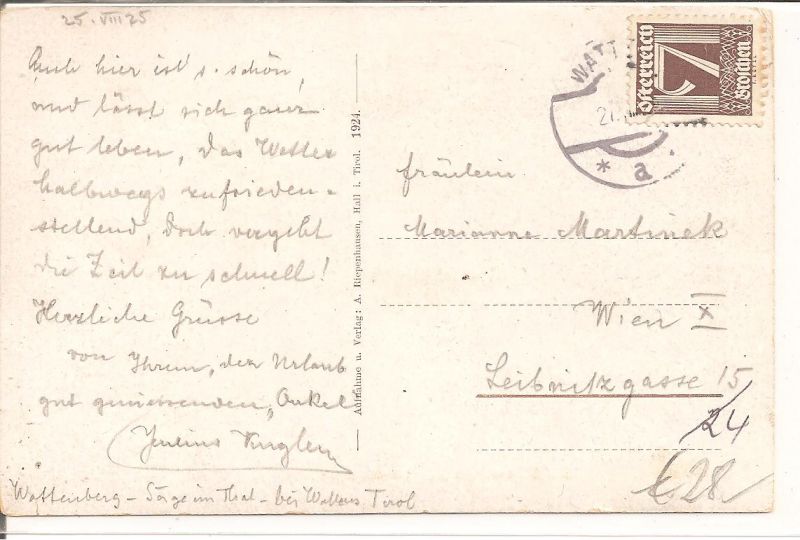 25. VIII 25
Auch hier ist's schön,
und lässt sich ganz
gut leben, das Wetter
halbwegs zufrieden-
stellend, doch vergeht
die Zeit zu schnell!
Herzliche Grüsse
von Ihrem, den Urlaub
gut geniessenden, Onkel
Wattenberg - im Thal - bei Wattens Tirol
Aufnahme u. Verlag: A. Riepenhausen, Hall i. Tirol. 1924.
WATT
* a
Österreich
7
Groschen
Fräulein
Marianne Martinek
Wien X
Leibnitzgasse 15
24
28